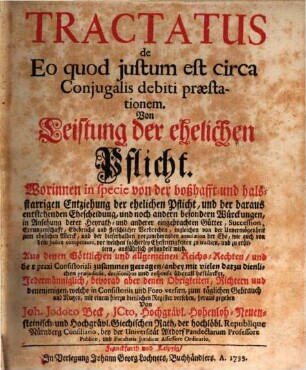 TRACTATUS
de
Eo quod justum est circa
Conjugalis debiti præsta-
tionem.
Von
Leistung der ehelichen
Pflicht.
Worinnen in specie von der boßhafft- und hals-
starrigen Entziehung der ehelichen Pflicht, und her daraus
entstehenden Ehescheidung, und noch andern besondern Würckungen,
in Ansehung derer Heyrath- und anderer eingebrachten Gütter, Succession,
Aus denen Göttlichen und allgemeinen Reichs-Rechten, und
de praxi Consistoriali zusammen getragen, und mit vielen darzu dienlichen
Jedermänniglich, bevorab aber denen Obrigkeiten, Richtern und
denenjenigen, welche in Consistoriis und Foro versiren, zum täglichen Gebrauch
und Nutzen, mit einem hierzu dienlichen Register versehen, heraus gegeben
Von
Joh. Jodoco Beck, JCto, Hochgräfl. Hohenloh-Neuen-
steinisch- und Hochgräfl. Giechischen Rath, der hochlöbl. Republique
Nürnberg Consiliario, bey der Universität Altdorf Pandectarum Professore
Publico, und Facultatis Juridicæ Assessore Ordinario.
Franckfurth und Leipzig,
In Verlegung Johann Georg Lochners, Buchhändlers. A. 1733.